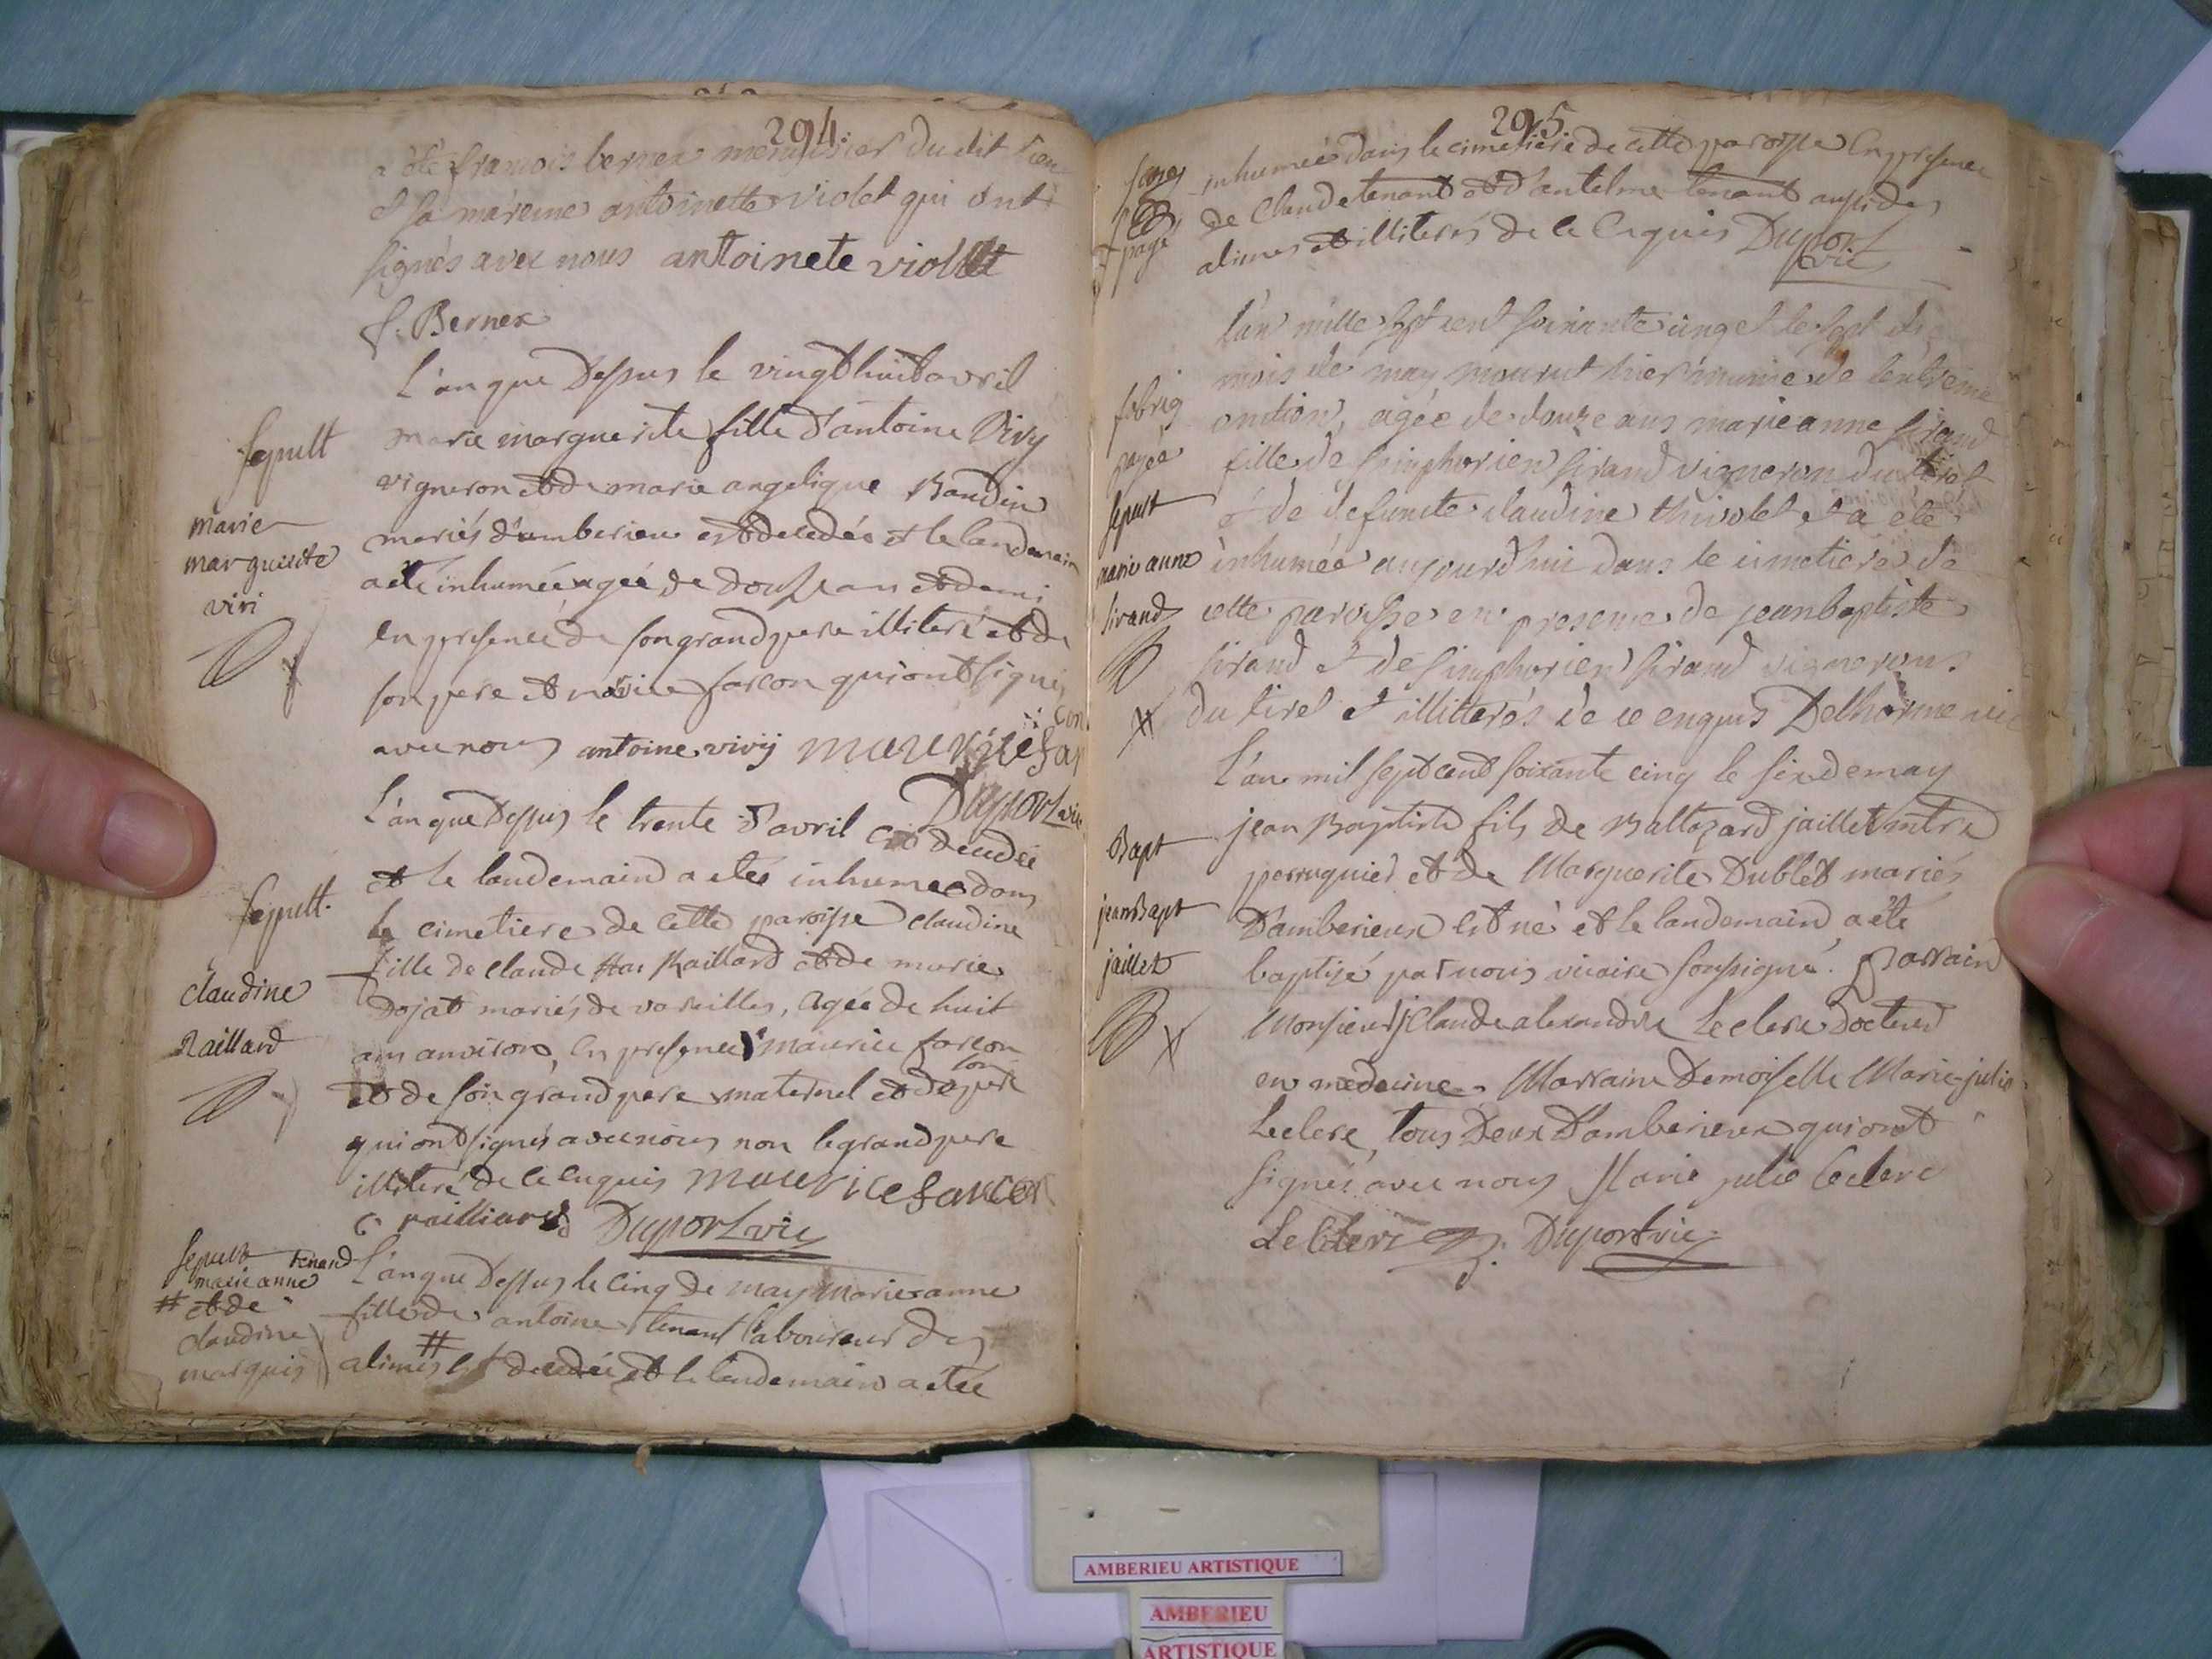 294
a été francois bernex menuisier du dit lieu
et sa mareine antoinette violet qui ont
signés avec nous antoinete violet
f: Bernex
L'an que Dessus le vingt huit avril
sepult
marie marguerite fille d'antoine Vivy
vigneron et de marie angelique Baudin
marie
marguerite
viri
mariés d'amberieu est decedée et le landemain
a été inhumée agée de douse ans et demi
en presence de son grand pere illiteré et de
son pere et maurice farcon qui ont signés
avec nous antoine vivÿ maurice far
con
Duport vic
L'an que Dessus le trente d'avril est decedée
et le landemain a etée inhumée dans
sepult.
le cimetiere de cette paroisse claudine
fille de claude Raillard et de marie
claudine
Raillard
Dojat mariés de vareilles, agée de huit
ans anviron, en presence maurice farcon
et de son grand pere maternel et de son pere
qui ont signés avec nous non le grand pere
illiteré de ce enquis maurice farcon
c railliard Duport vic
sepult
marie anne tenand
# et de
claudine
marquis
L'an que Dessus le cinq de may marie anne
fille de antoine tenant laboureur des
# alimes est decedée et le landemain a etée
295
payé
inhumée dans le cimetiere de cette paroisse En presence
de Claude tenant et d'antelme tenant aussi des
alimes et illiterés de ce Enquis Duport
vic
L'an mille sept cent soixante cinq et le sept du
mois de may mourut hier munie de l'extreme
onction, agée de douze ans marie anne sirand
fabriq
payée
fille de simphorien sirand vigneron du tiret
sepult
marie anne
sirand
et de defuncte claudine thivolet et a été
inhumée aujourd'hui dans le cimetiere de
cette paroisse en presence de jean baptiste
sirand et de simphorien sirand vignerons
du tiret et illitterés de ce enquis Delhorme vic
L'an mil sept cent soixante cinq le six de may
Bapt
jean Bapt
jaillet
jean Baptiste fils de Baltazard jaillet mtre
perruquier et de Marguerite Dublet mariés
D'amberieux est né et le landemain a été
baptizé par nous vicaire soussigné. Parrain
Monsieur Claude alexandre Leclerc Docteur
en medecine. Marraine Demoiselle Marie julie
Leclerc, tous Deux D'amberieux qui ont
signés avec nous Marie julie leclerc
Leclerc Duport vic
AMBERIEU ARTISTIQUE
AMBERIEU
ARTISTIQUE